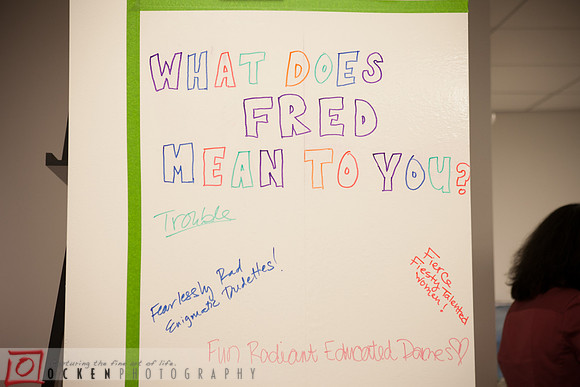 WHAT DOES
FRED
MEAN TO YOU?
Trouble
Fearlessly Rad
Enigmatic Dudettes!
Fierce
Fiesty Talented
Women!
Fun Radiant Educated Dames
capturing the fine art of life.
OCKENPHOTOGRAPHY